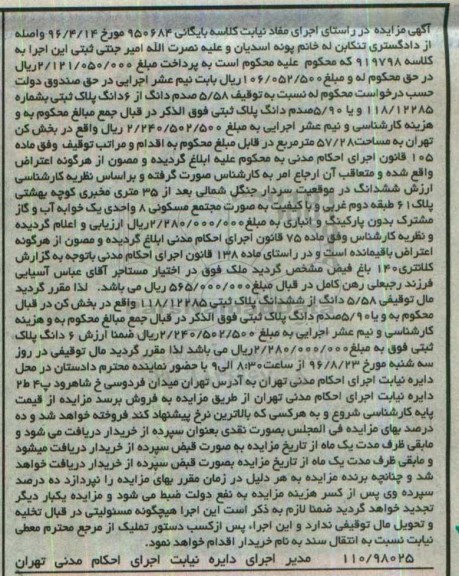 آگهی مزایده در راستای اجرای مفاد نیابت کلاسه بایگانی ۹۵۰۶۸۴ مورخ ۹۶/۴/۱۴ واصله
از دادگستری تنکابن له خانم پونه اسدیان و علیه نصرت الله امیر جنتی ثبتی این اجرا به
کلاسه ۹۱۹۷۹۸ که محکوم علیه محکوم است به پرداخت مبلغ ۲/۱۲۱/۰۵۰/۰۰۰ریال
در حق محکوم له و مبلغ ۱۰۶/۰۵۲/۵۰۰ریال بابت نیم عشر اجرایی در حق صندوق دولت
حسب درخواست محکوم له نسبت به توقیف ۵/۵۸ صدم دانگ از ۶دانگ پلاک ثبتی بشماره
۱۱۸/۱۲۲۸۵ و یا ۵/۹۰صدم دانگ پلاک ثبتی فوق الذکر در قبال جمع مبالغ محکوم به و
هزینه کارشناسی و نیم عشر اجرایی به مبلغ ۲/۲۴۰/۵۰۲/۵۰۰ ریال واقع در بخش کن
تهران به مساحت۵۷/۲۸ مترمربع در قابل مبلغ محکوم به اقدام و مراتب توقیف وفق ماده
۱۰۵ قانون اجرای احکام مدنی به محکوم علیه ابلاغ گردیده و مصون از هرگونه اعتراض
واقع شده و متعاقب آن ارجاع امر به کارشناس صورت گرفته و براساس نظریه کارشناسی
ارزش ششدانگ در موقعیت سردار جنگل شمالی بعد از ۳۵ متری مخبری کوچه بهشتی
پلاک۶۱ طبقه دوم غربی و با کیفیت به صورت مجتمع مسکونی ۸ واحدی یک خوابه آب و گاز
مشترک بدون پارکینگ و انباری به مبلغ۲/۲۸۰/۰۰۰/۰۰۰ریال ارزیابی و اعلام گردیده
و نظریه کارشناس وفق ماده ۷۵ قانون اجرای احکام مدنی ابلاغ گردیده و مصون از هرگونه
اعتراض باقیمانده است و در راستای ماده ۱۳۸ قانون اجرای احکام مدنی باتوجه به گزارش
کلانتری۱۴۰ باغ فیض مشخص گردید ملک فوق در اختیار مستاجر آقای عباس آسیایی
فرزند رجبعلی رهن کامل در قبال مبلغ۵۶۵/۰۰۰/۰۰۰ ریال می باشد. لذا مقرر گردید
مال توقیفی ۵/۵۸ دانگ از ششدانگ پلاک ثبتی ۱۱۸/۱۲۲۸۵ واقع در بخش کن در قبال
محکوم به و یا۵/۹۰صدم دانگ پلاک ثبتی فوق الذکر در قبال جمع مبالغ محکوم به و هزینه
کارشناسی و نیم عشر اجرایی به مبلغ ۲/۲۴۰/۵۰۲/۵۰۰ریال ضمنا ارزش ۶ دانگ پلاک
ثبتی فوق به مبلغ۲/۲۸۰/۰۰۰/۰۰۰ریال می باشد لذا مقرر گردید مال توقیفی در روز
سه شنبه مورخ ۹۶/۸/۲۳ از ساعت ۸:۳۰ الی۹ با حضور نماینده محترم دادستان در محل
دایره نیابت اجرای احکام مدنی تهران به آدرس تهران میدان فردوسی خ شاهرود پ۴ ط۲
دایره نیابت اجرای احکام مدنی تهران از طریق مزایده به فروش برسد مزایده از قیمت
پایه کارشناسی شروع و به هرکسی که بالاترین نرخ پیشنهاد کند فروخته خواهد شد و ده
درصد بهای مزایده فی المجلس بصورت نقدی بعنوان سپرده از خریدار دریافت می شود و
مابقی ظرف مدت یک ماه از تاریخ مزایده به صورت قبض سپرده از خریدار دریافت میشود
و مابقی ظرف مدت یک ماه از تاریخ مزایده بصورت قبض سپرده از خریدار دریافت خواهد
شد و چنانچه برنده مزایده به هر دلیل در زمان مقرر بهای مزایده را نپردازد ده درصد
سپرده وی پس از کسر هزینه مزایده به نفع دولت ضبط می شود و مزایده یکبار دیگر
تجدید خواهد گردید ضمنا لازم به ذکر است این اجرا هیچگونه مسئولیتی در قبال تخلیه
و تحویل مال توقیفی ندارد و این اجراء پس ازکسب دستور تملیک از مرجع محترم معطی
نیابت نسبت به انتقال سند به نام خریدار اقدام خواهد نمود.
۱۱۰/۹۸۰۲۵ مدیر اجرای دایره نیابت اجرای احکام مدنی تهران